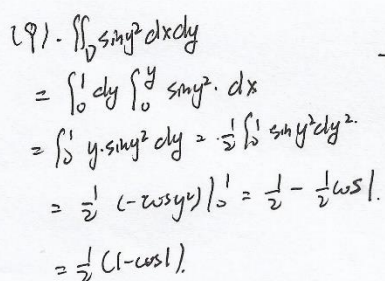 (9). ∬_D siny² dxdy
= ∫₀¹ dy ∫₀^y siny². dx
= ∫₀¹ y.siny² dy = ½ ∫₀¹ siny² dy².
= ½ (-cosy²)|₀¹ = ½ - ½cos1.
= ½ (1-cos1).